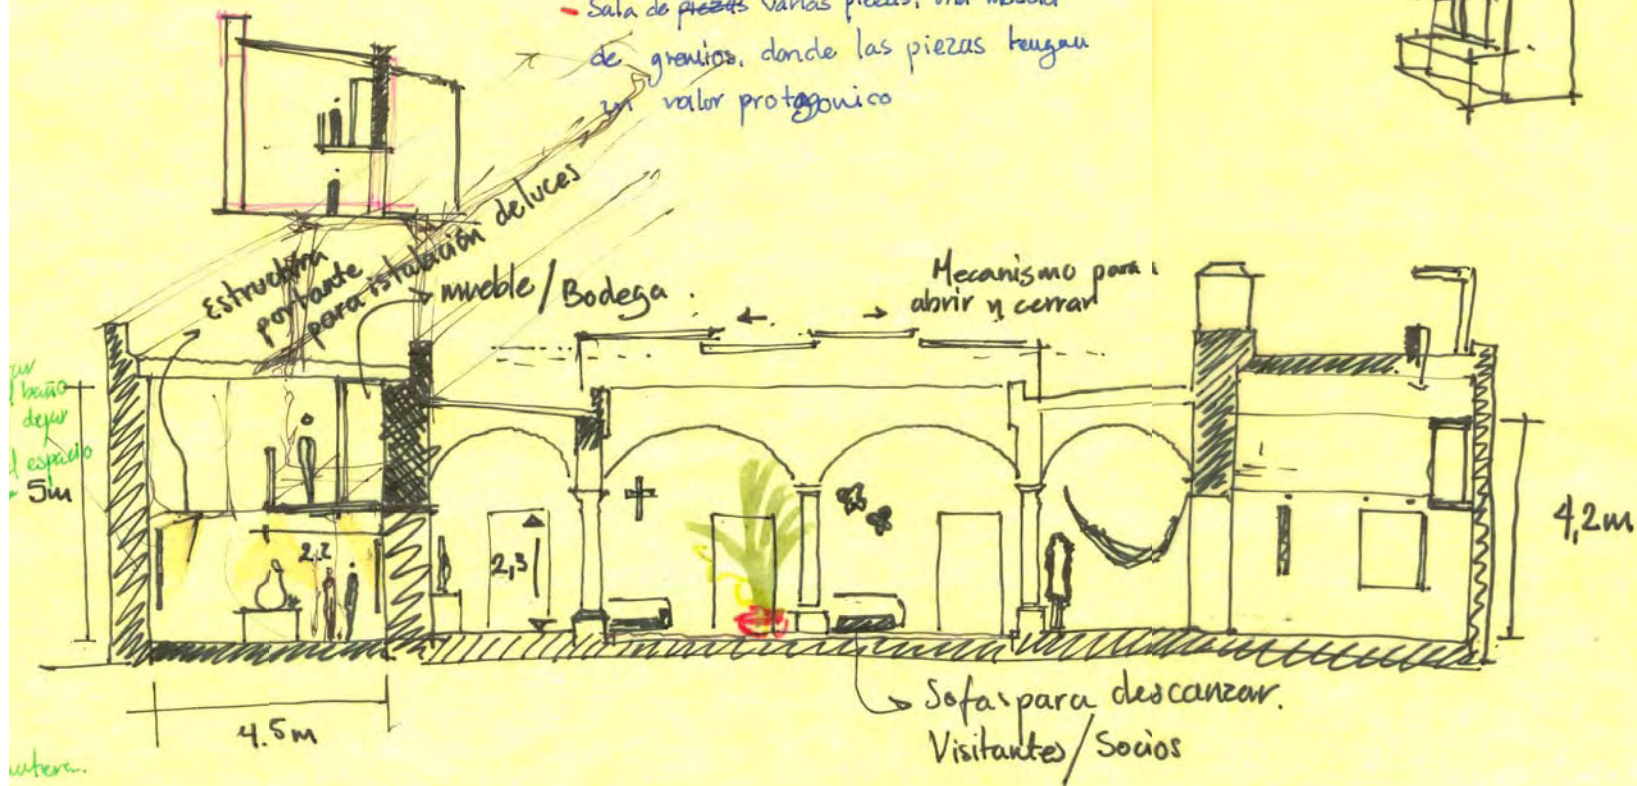 - Sala de piezas varias piezas, una
de gremios, donde las piezas tengan
un valor protagonico
Estructura
portante
para istalación de luces
mueble/Bodega
Mecanismo para
abrir y cerrar
baño
dejar
espacio
5m
2,2
2,3
4,2m
4.5m
Sofas para descanzar.
Visitantes/Socios